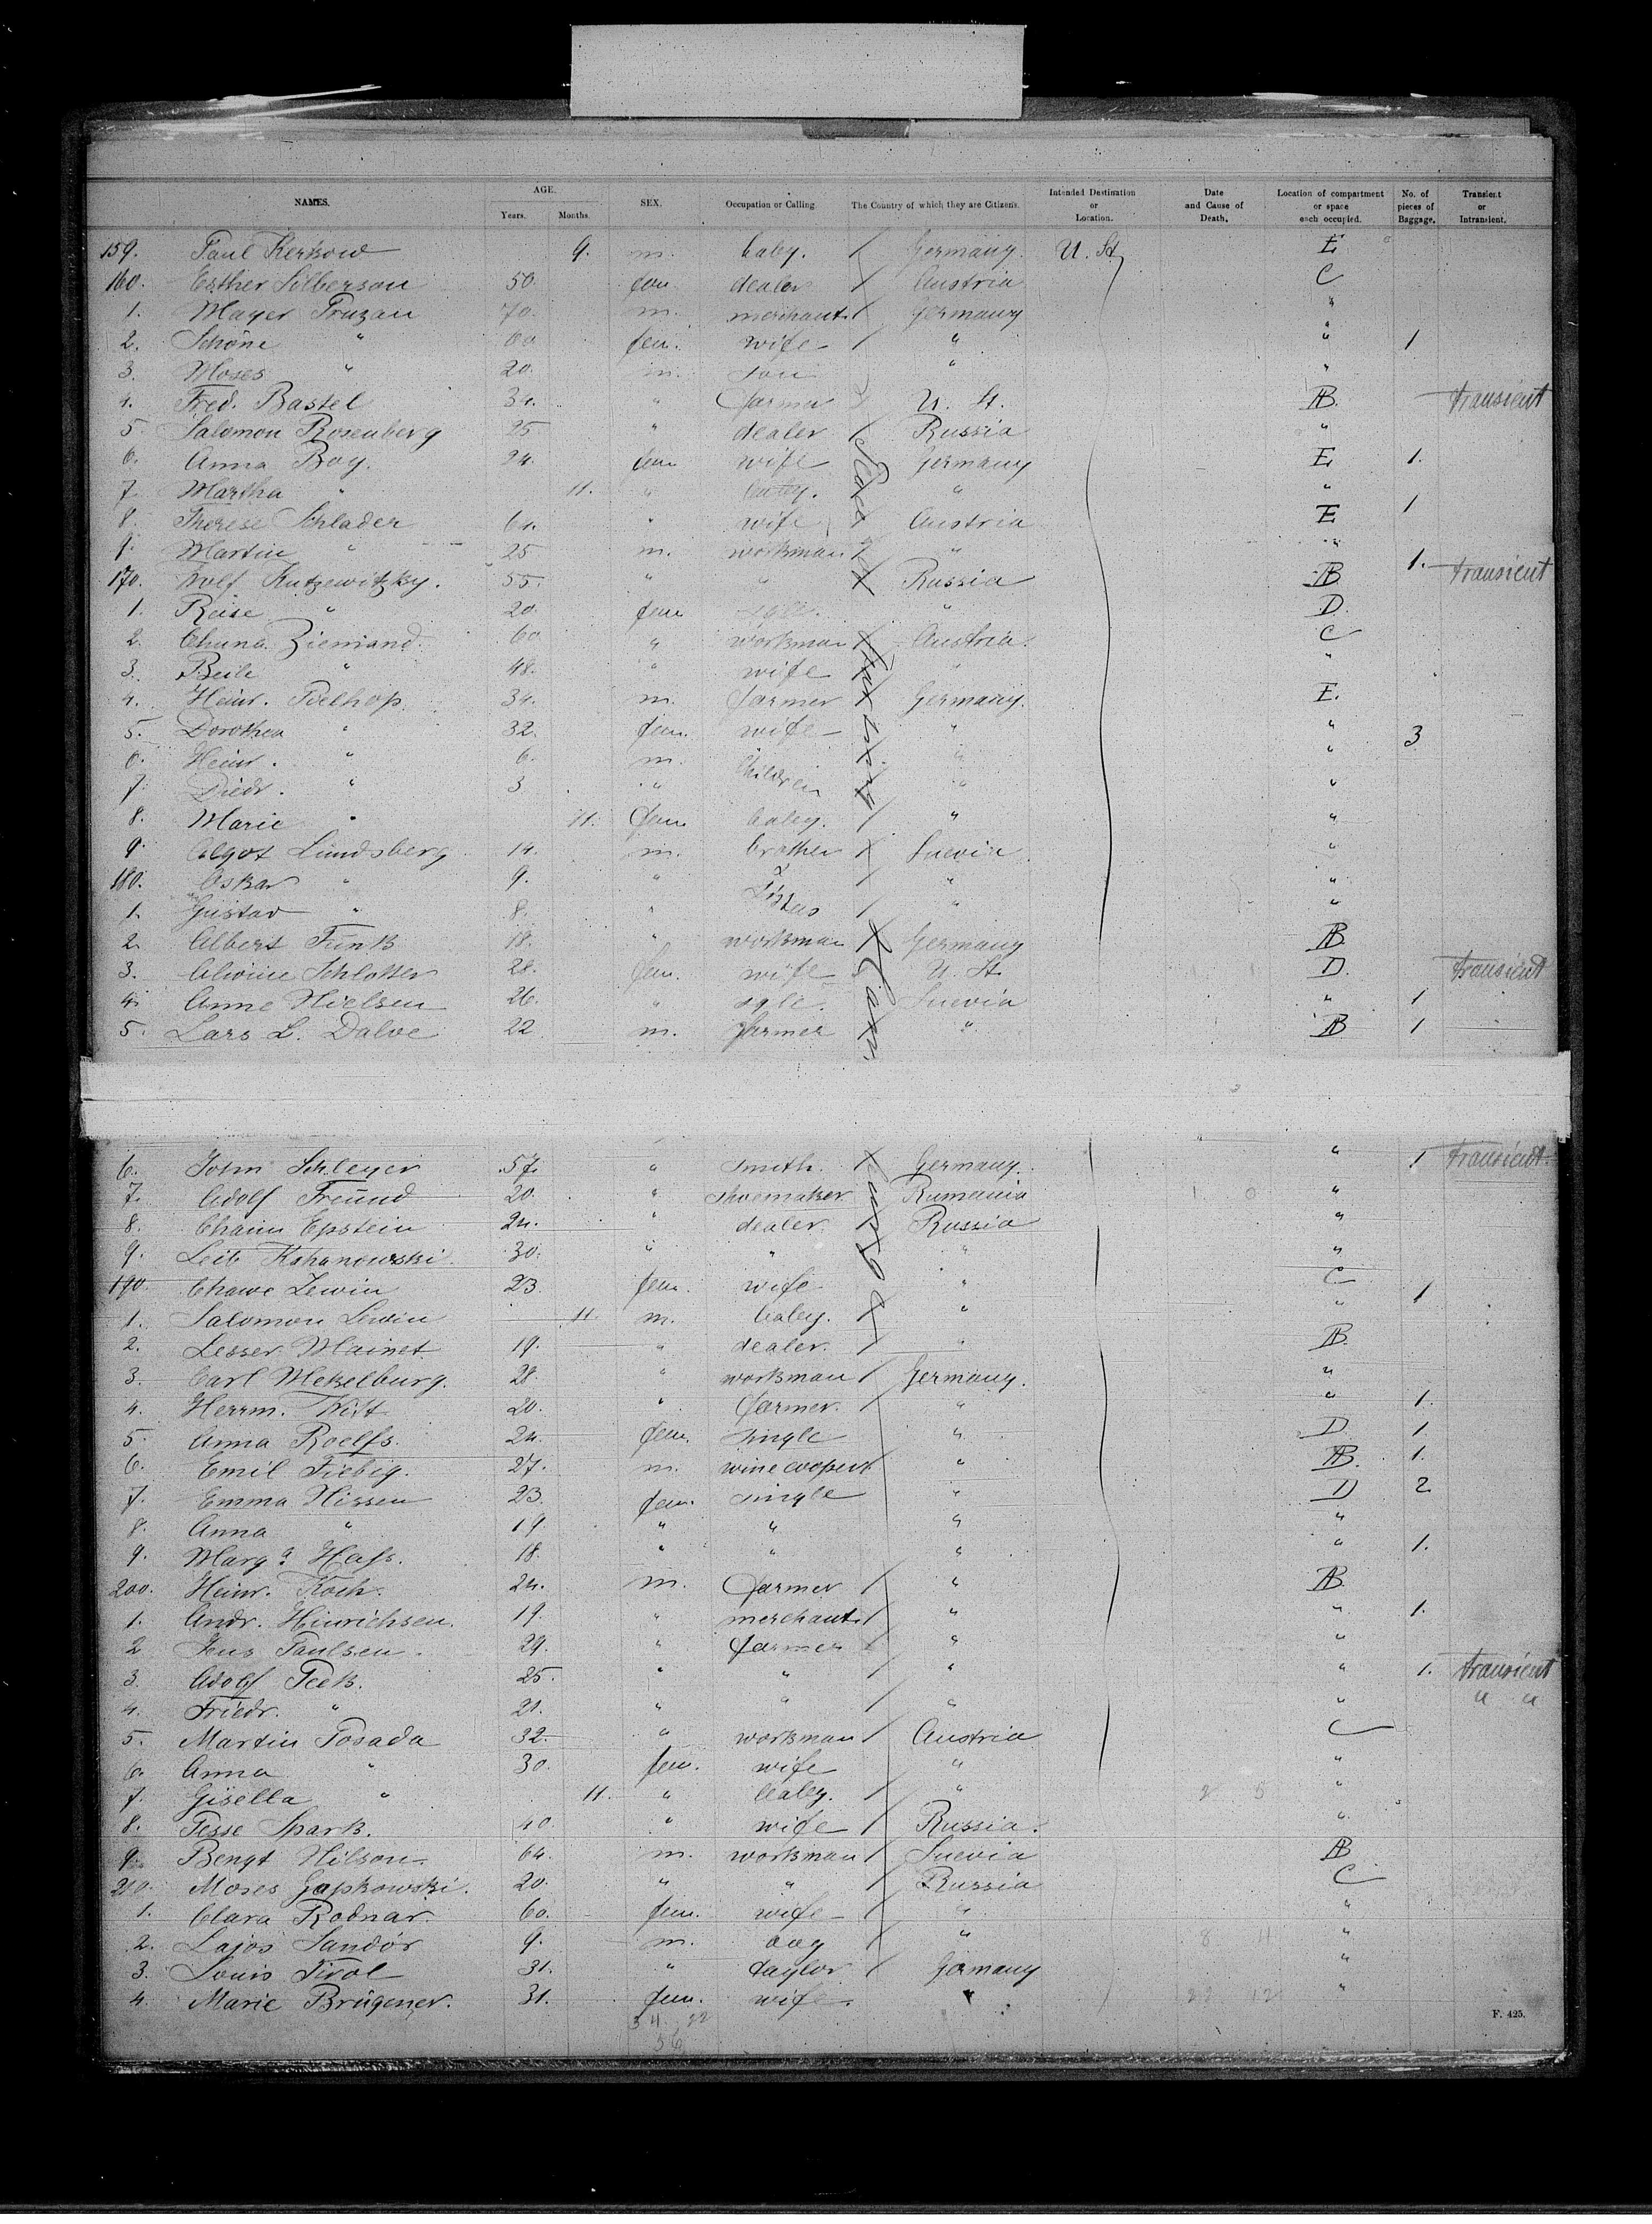 NAMES. AGE. Years. Months. SEX. Occupation or Calling. The Country of which they are Citizens. Intended Destination or Location. Date and Cause of Death. Location of compartment or space each occupied. No. of pieces of Baggage. Transient or Intransient.
159. Paul Kerkow 9. m. baby. Germany. U. St.  E
160. Esther Silberson 50. fem. dealer Austria C
1. Mayer Pruzan 70. m. merchant Germany "
2. Schöne " 60 fem. wife " " 1
3. Moses " 20. m. son " "
4. Fred. Bastel 34. " farmer U. St. AB. transient
5. Salomon Rosenberg 25 " dealer Russia "
6. Anna Boy. 24. fem wife Germany E 1.
7. Martha " 11. " baby. " "
8. Therese Schlader 61. " wife Austria E 1
9. Martin " 25 m. workman " "
170. Wolf Kutzewitzky. 55. " " Russia AB 1. transient
1. Reise " 20. fem sgle. " D.
2. Chuna Ziemand. 60 " workman Austria. C
3. Beile " 48. " wife " "
4. Heinr. Pielhop 34. m. farmer Germany. E.
5. Dorothea " 32. fem. wife " " 3
6. Heinr. " 6. m. children " "
7. Diedr. " 3 " " "
8. Marie " 11. fem baby. " "
9. Algot Lundsberg 14. m. brother Suevia "
180. Oskar " 9. " " "
1. Gustav " 8. " " "
2. Albert Funk 18. " workman Germany AB
3. Alwine Schlotter 28. fem. wife U. St. D. transient
4. Anne Nielsen 26. " sgle. Suevia " 1
5. Lars L. Dalve 22 m. farmer " AB 1
6. John Schleyer 57. " smith. Germany. " 1 transient
7. Adolf Freund 20. " shoemaker Rumania "
8. Chaim Epstein 24. " dealer. Russia "
9. Leib Kahanowski. 30. " " " "
190. Chawe Lewin 23 fem. wife " C 1
1. Salomon Lewin 11. m. baby. " "
2. Lesser Mainet 19. " dealer. " AB.
3. Carl Mekelburg. 28. " workman Germany. "
4. Herrm. Witt 20. " farmer. " " 1.
5. Anna Roelfs. 24. fem. single " D 1
6. Emil Fiebig. 27. m. wine cooper " AB. 1.
7. Emma Nissen 23. fem. single " D 2
8. Anna " 19. " " " "
9. Marg.a Hass. 18. " " " " 1.
200. Heinr. Koch. 24. m. farmer " AB.
1. Andr. Hinrichsen. 19. " merchant " " 1.
2 Jens Paulsen. 29. " farmer " "
3. Adolf Peek. 25. " " " " 1. transient
4. Friedr. " 21. " " " " " "
5. Martin Posada 32. " workman Austria C
6. Anna " 30. fem. wife " "
7. Gisella " 11. " baby. " "
8. Pesse Spark. 40. " wife Russia. "
9. Bengt Nilson 64. m. workman Suevia AB
210. Moses Gapkowski. 20. " " Russia C
1. Clara Rodnar. 60. fem. wife " "
2. Lajos Sandór 9. m. boy " "
3. Louis Tirol 31. " taylor Germany "
4. Marie Brügener. 31. fem. wife. " "
F. 425.